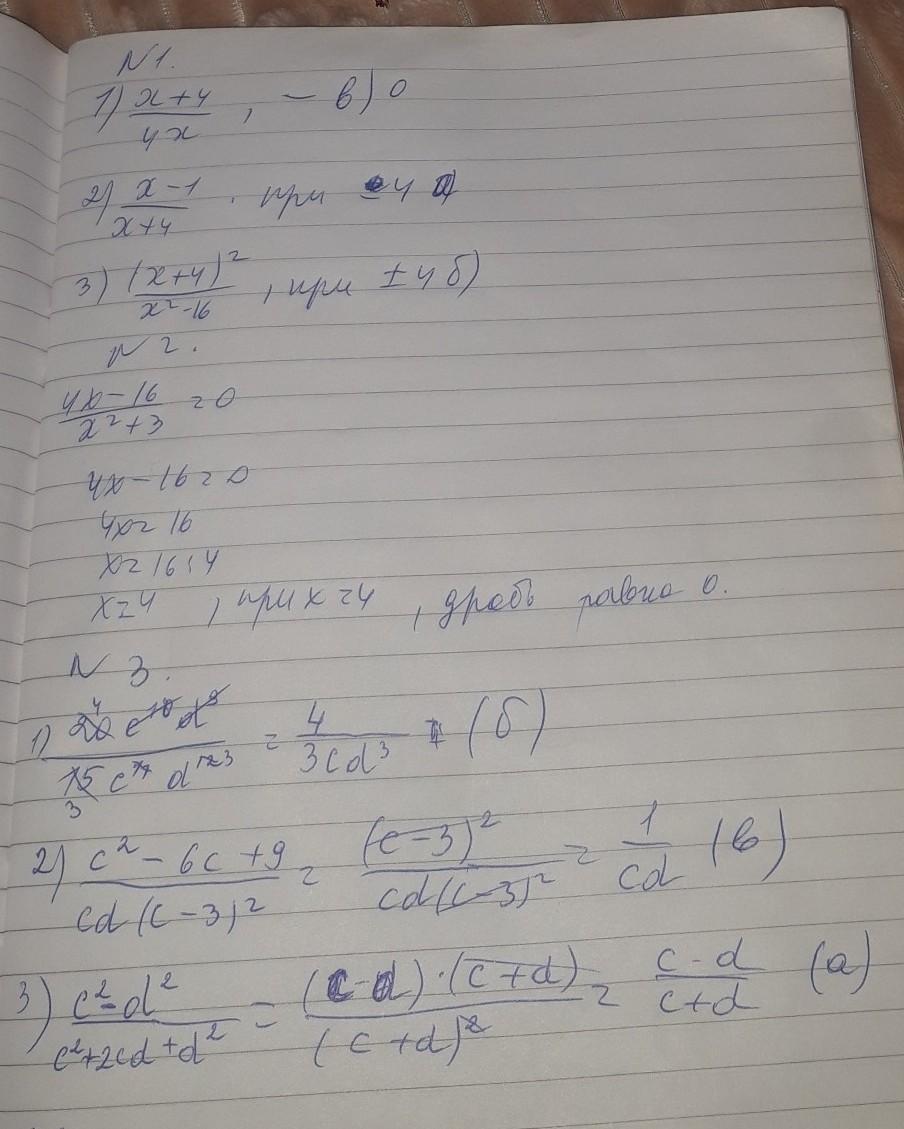 N1.
1) (x+4)/(4x), – в) 0
2) (x-1)/(x+4). при -4
3) (x+4)²/(x²-16), при ±4 б)
N2.
(4x-16)/(x²+3) = 0
4x-16=0
4x=16
x=16:4
x=4, при x=4, дробь равна 0.
N 3.
1) = 4/(3cd³) (б)
2) (c²-6c+9)/(cd(c-3)²) = (c-3)²/(cd(c-3)²) = 1/(cd) (в)
3) (c²-d²)/(c²+2cd+d²) = ((c-d)·(c+d))/(c+d)² = (c-d)/(c+d) (а)